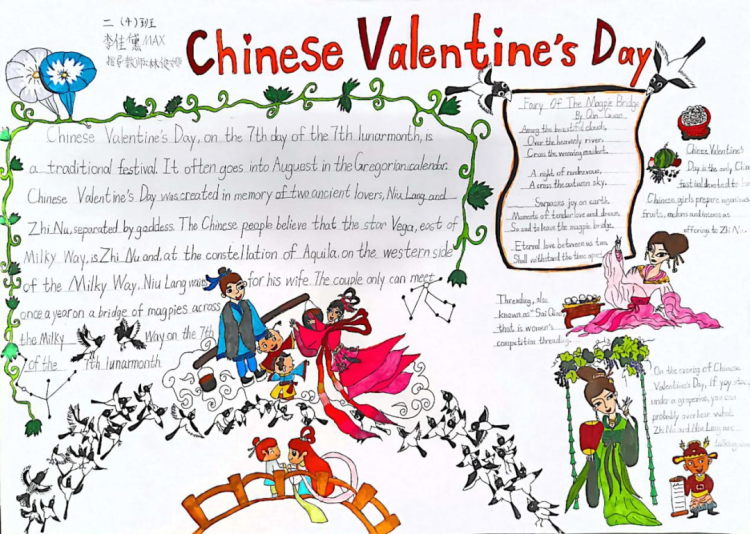 二(4)班
李佳
MAX
指导教师:林
Chinese Valentine's Day
Chinese Valentine's Day, on the 7th day of the 7th lunarmonth, is
a traditional festival. It often goes into Auguest in the Gregorian calendar.
Chinese Valentine's Day was created in memory of two ancient lovers, Niu Lang and
Zhi Nu, separated by goddess. The Chinese people believe that the star Vega, east of
Milky Way, is Zhi Nu and, at the constellation of Aquila on the western side
of the Milky Way, Niu Lang waits for his wife. The couple only can meet
once a year on a bridge of magpies across
the Milky Way on the 7th
of the 7th lunarmonth
Fairy Of The Magpie Bridge
By Qin Guan
Among the beautiful clouds,
Over the heavenly river,
Cross the weaving maiden.
A night of rendezvous,
Across the autumn sky.
Surpasses joy on earth.
Moments of tender love and dream
So sad to leave the magpie bridge.
Eternal love between us two
Shall withstand the time apart
Valentine's
Day is the only
festival devoted to
Chinese girls prepare
fruits, melons and incense as
offering to Zhi Nu.
Threading, also
known as "Sai Qiao"
that is women's
competition threading.
On the evening of Chinese
Valentine's Day, if you stand
under a grapevine, you can
probably overhear what
Zhi Nu and Niu Lang are
talking